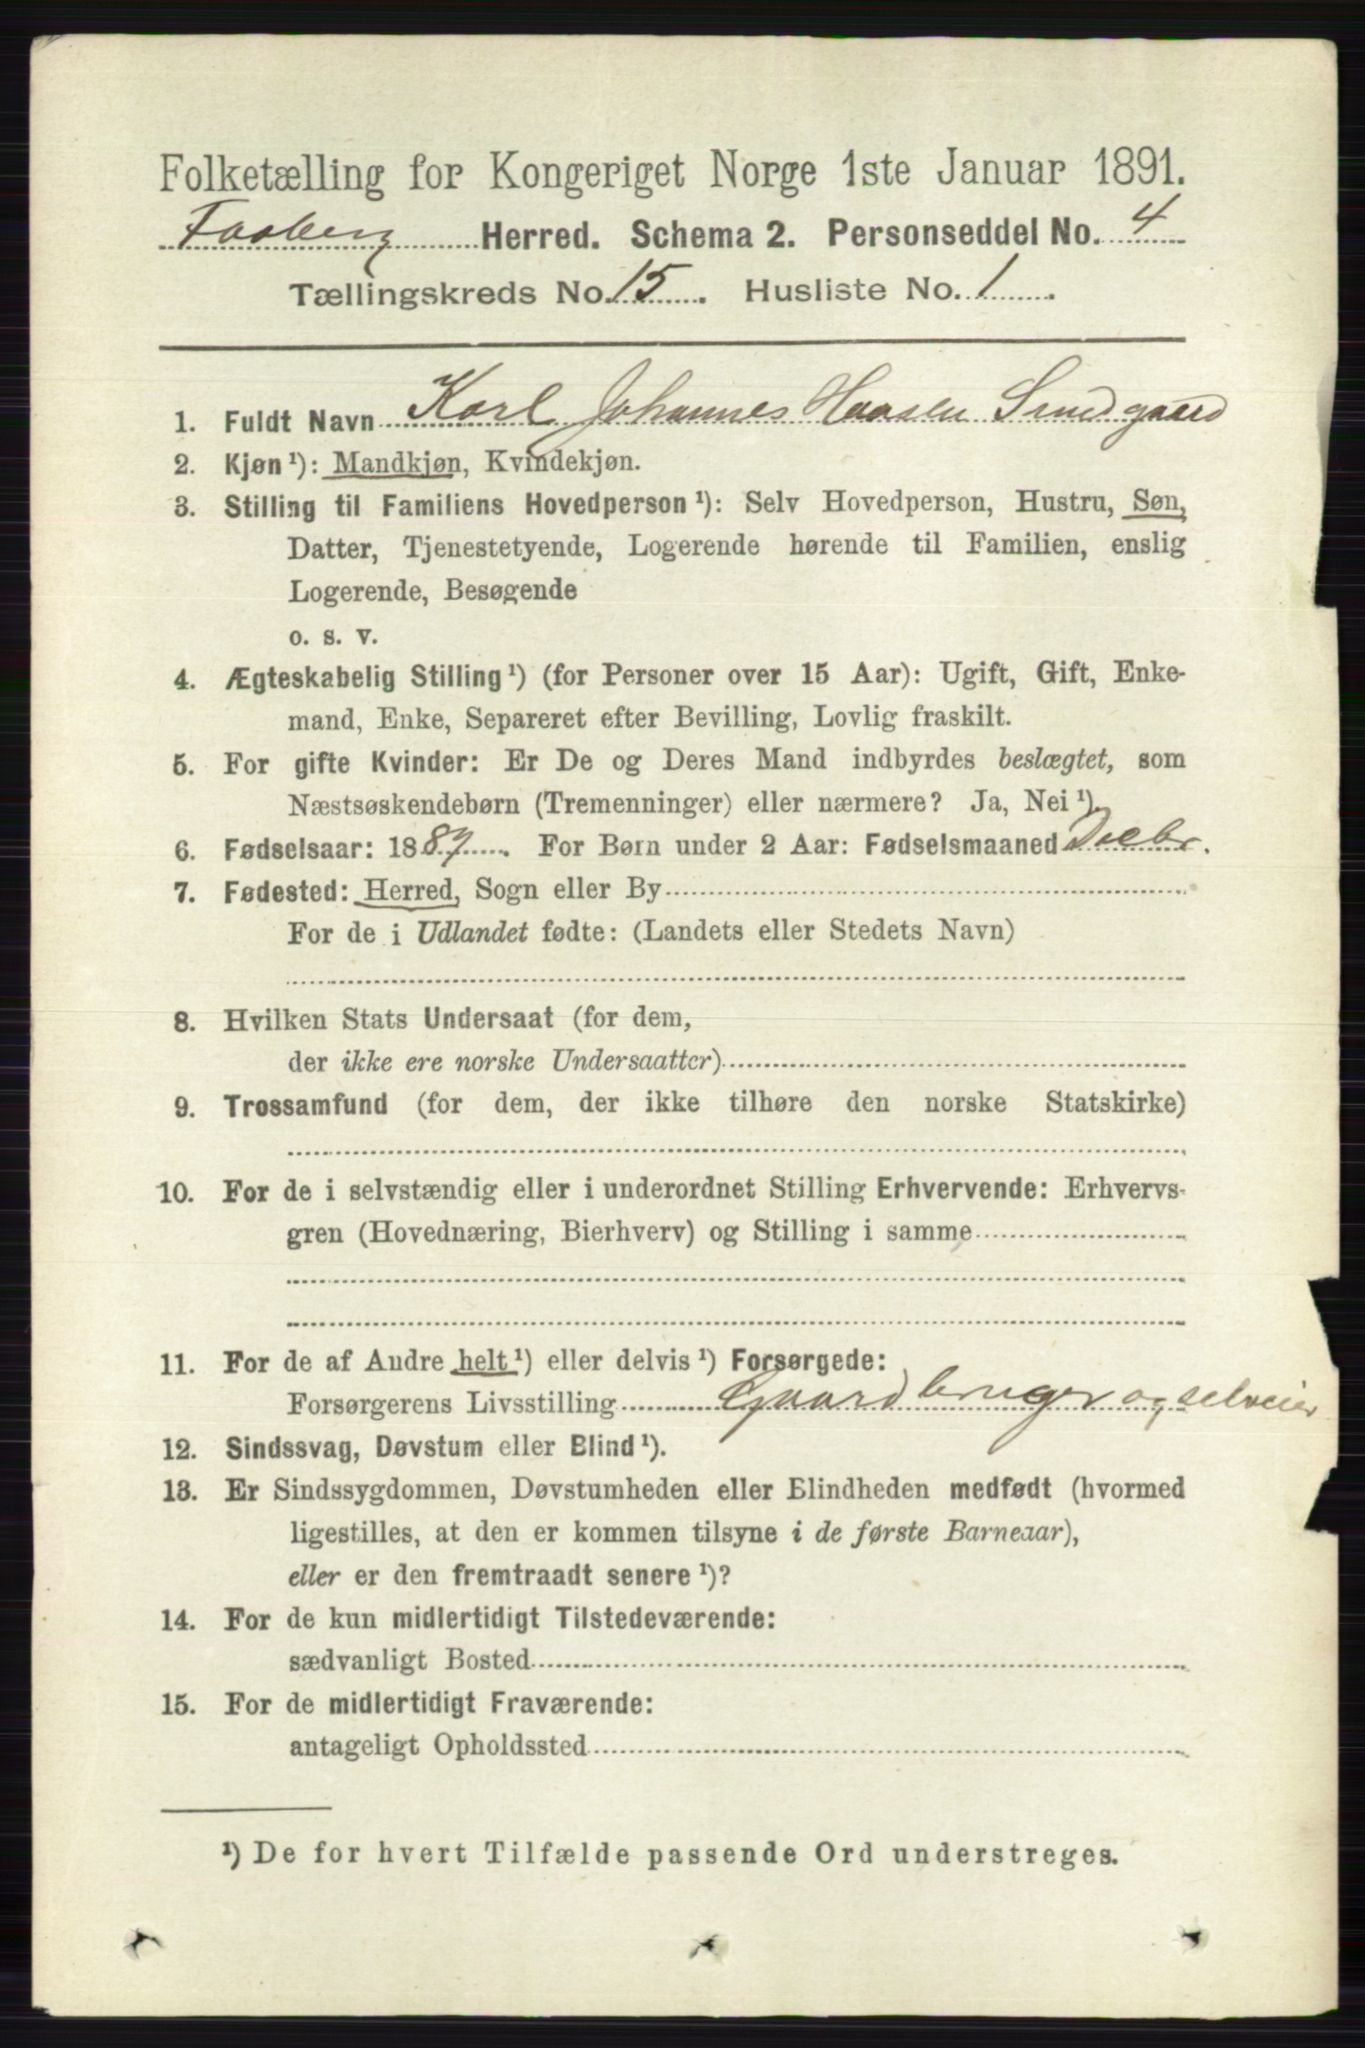 Folketælling for Kongeriget Norge 1ste Januar 1891.
Faaberg Herred. Schema 2. Personseddel No. 4
Tællingskreds No. 15. Husliste No. 1.
1. Fuldt Navn Karl Johannes Hansen
2. Kjøn ¹): Mandkjøn, Kvindekjøn.
3. Stilling til Familiens Hovedperson ¹): Selv Hovedperson, Hustru, Søn,
Datter, Tjenestetyende, Logerende hørende til Familien, enslig
Logerende, Besøgende
o. s. v.
4. Ægteskabelig Stilling ¹) (for Personer over 15 Aar): Ugift, Gift, Enke-
mand, Enke, Separeret efter Bevilling, Lovlig fraskilt.
5. For gifte Kvinder: Er De og Deres Mand indbyrdes beslægtet, som
Næstsøskendebørn (Tremenninger) eller nærmere? Ja, Nei ¹).
6. Fødselsaar: 1889. For Børn under 2 Aar: Fødselsmaaned Decbr.
7. Fødested: Herred, Sogn eller By
For de i Udlandet fødte: (Landets eller Stedets Navn)
8. Hvilken Stats Undersaat (for dem,
der ikke ere norske Undersaatter)
9. Trossamfund (for dem, der ikke tilhøre den norske Statskirke)
10. For de i selvstændig eller i underordnet Stilling Erhvervende: Erhvervs-
gren (Hovednæring, Bierhverv) og Stilling i samme
11. For de af Andre helt ¹) eller delvis ¹) Forsørgede:
Forsørgerens Livsstilling Gaardbruger og selveier
12. Sindssvag, Døvstum eller Blind ¹).
13. Er Sindssygdommen, Døvstumheden eller Blindheden medfødt (hvormed
ligestilles, at den er kommen tilsyne i de første Barneaar),
eller er den fremtraadt senere ¹)?
14. For de kun midlertidigt Tilstedeværende:
sædvanligt Bosted
15. For de midlertidigt Fraværende:
antageligt Opholdssted
¹) De for hvert Tilfælde passende Ord understreges.